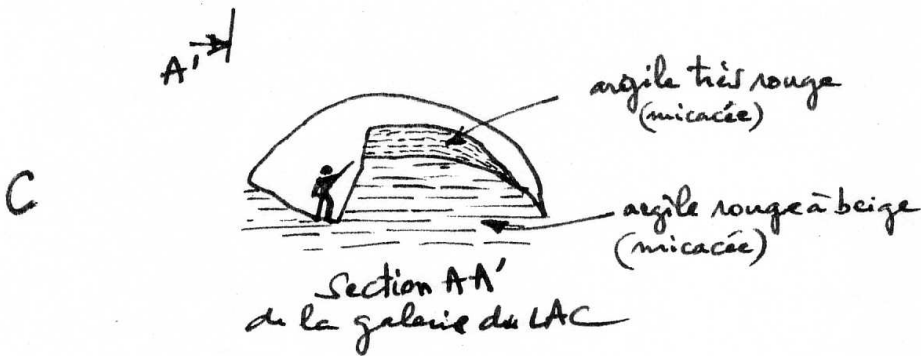 A'
argile très rouge
(micacée)
C
argile rouge à beige
(micacée)
Section AA'
de la galerie du LAC